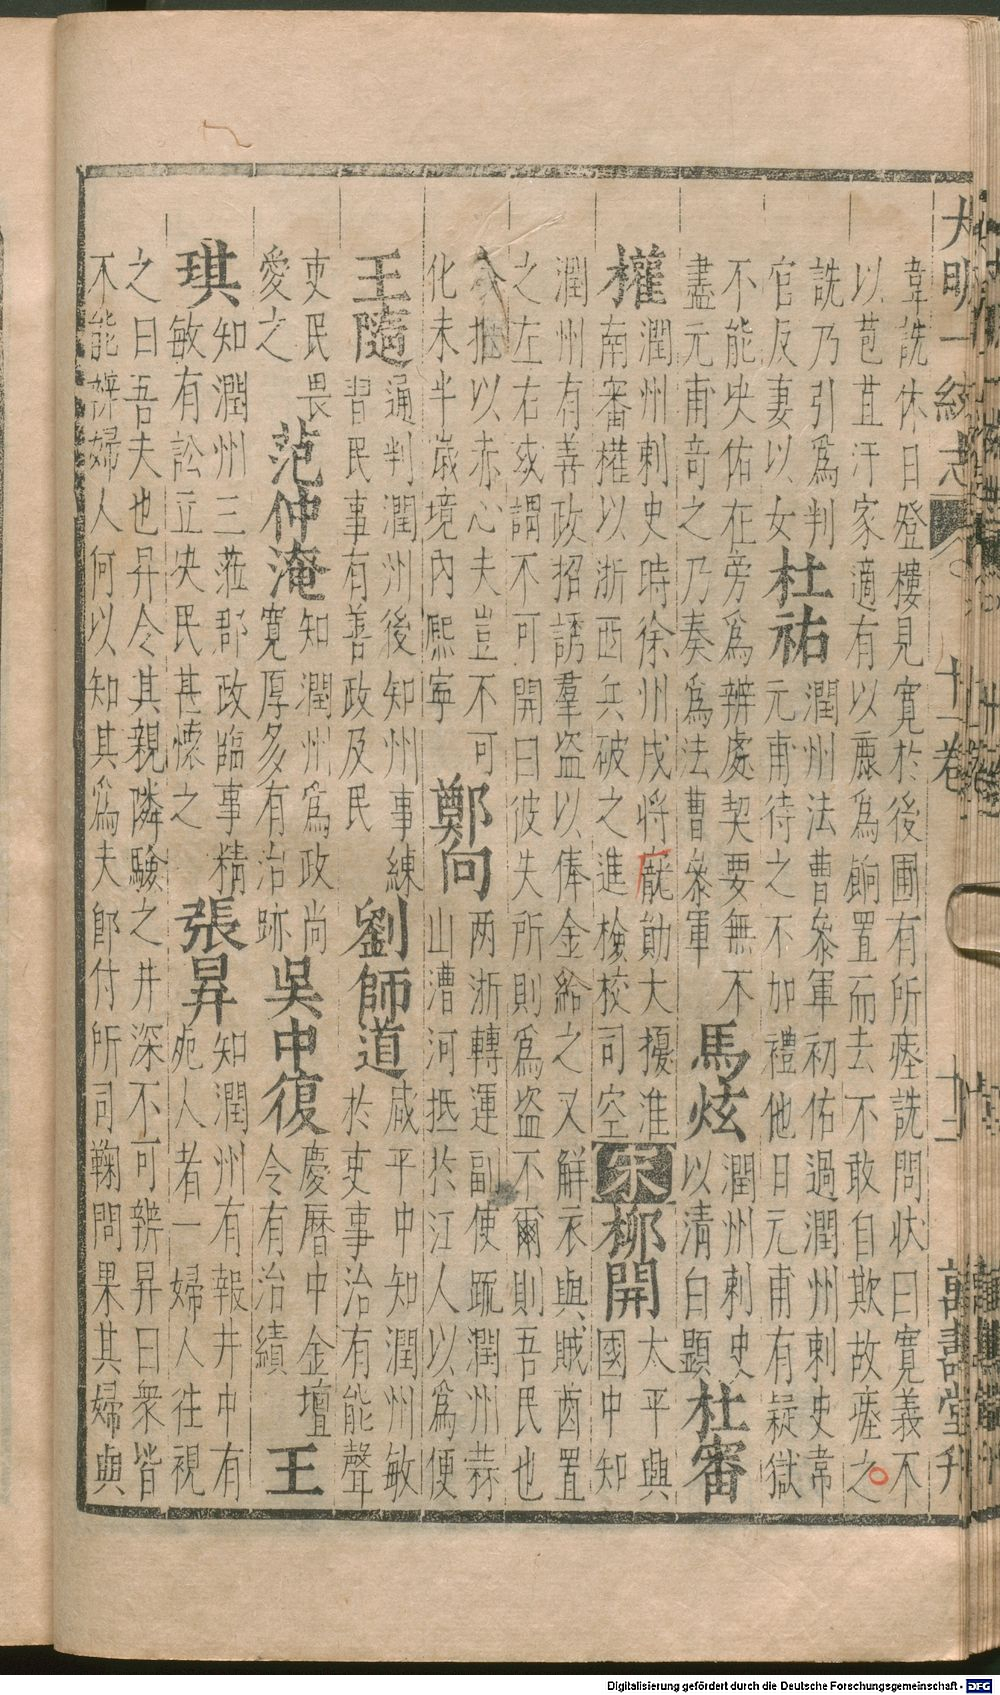 大明一統志 十一卷 十三 萬壽堂刊
韋詵休日登樓見寬於後圃有所瘞詵問狀曰寬義不
以苞苴汙家適有以鹿爲餉置而去不敢自欺故瘞之
詵乃引爲判
官反妻以女
杜祐
潤州法曹叅軍初佑過潤州刺史韋
元甫待之不加禮他日元甫有疑獄
不能决佑在旁爲辨處契要無不
盡元甫竒之乃奏爲法曹叅軍
馬炫
潤州刺史
以清白顯
杜審
權
潤州刺史時徐州戍將龐勛大擾淮
南審權以浙西兵破之進檢校司空
宋
柳開
太平興
國中知
潤州有善政招誘羣盗以俸金給之又解衣與賊酋置
之左右或謂不可開曰彼失所則爲盗不爾則吾民也
今推以赤心夫豈不可
化未半歲境內熈寧
鄭向
两浙轉運副使䟽潤州蒜
山漕河抵於江人以爲便
王隨
通判潤州後知州事練
習民事有善政及民
劉師道
咸平中知潤州敏
於吏事治有能聲
吏民畏
愛之
范仲淹
知潤州爲政尚
寬厚多有治跡
吳中復
慶曆中金壇
令有治績
王
琪
知潤州三蒞郡政臨事精
敏有訟立决民甚懷之
張昇
知潤州有報井中有
死人者一婦人往視
之曰吾夫也昇令其親隣驗之井深不可辨昇曰衆皆
不能辨婦人何以知其爲夫郎付所司鞠問果其婦與
Digitalisierung gefördert durch die Deutsche Forschungsgemeinschaft - DFG